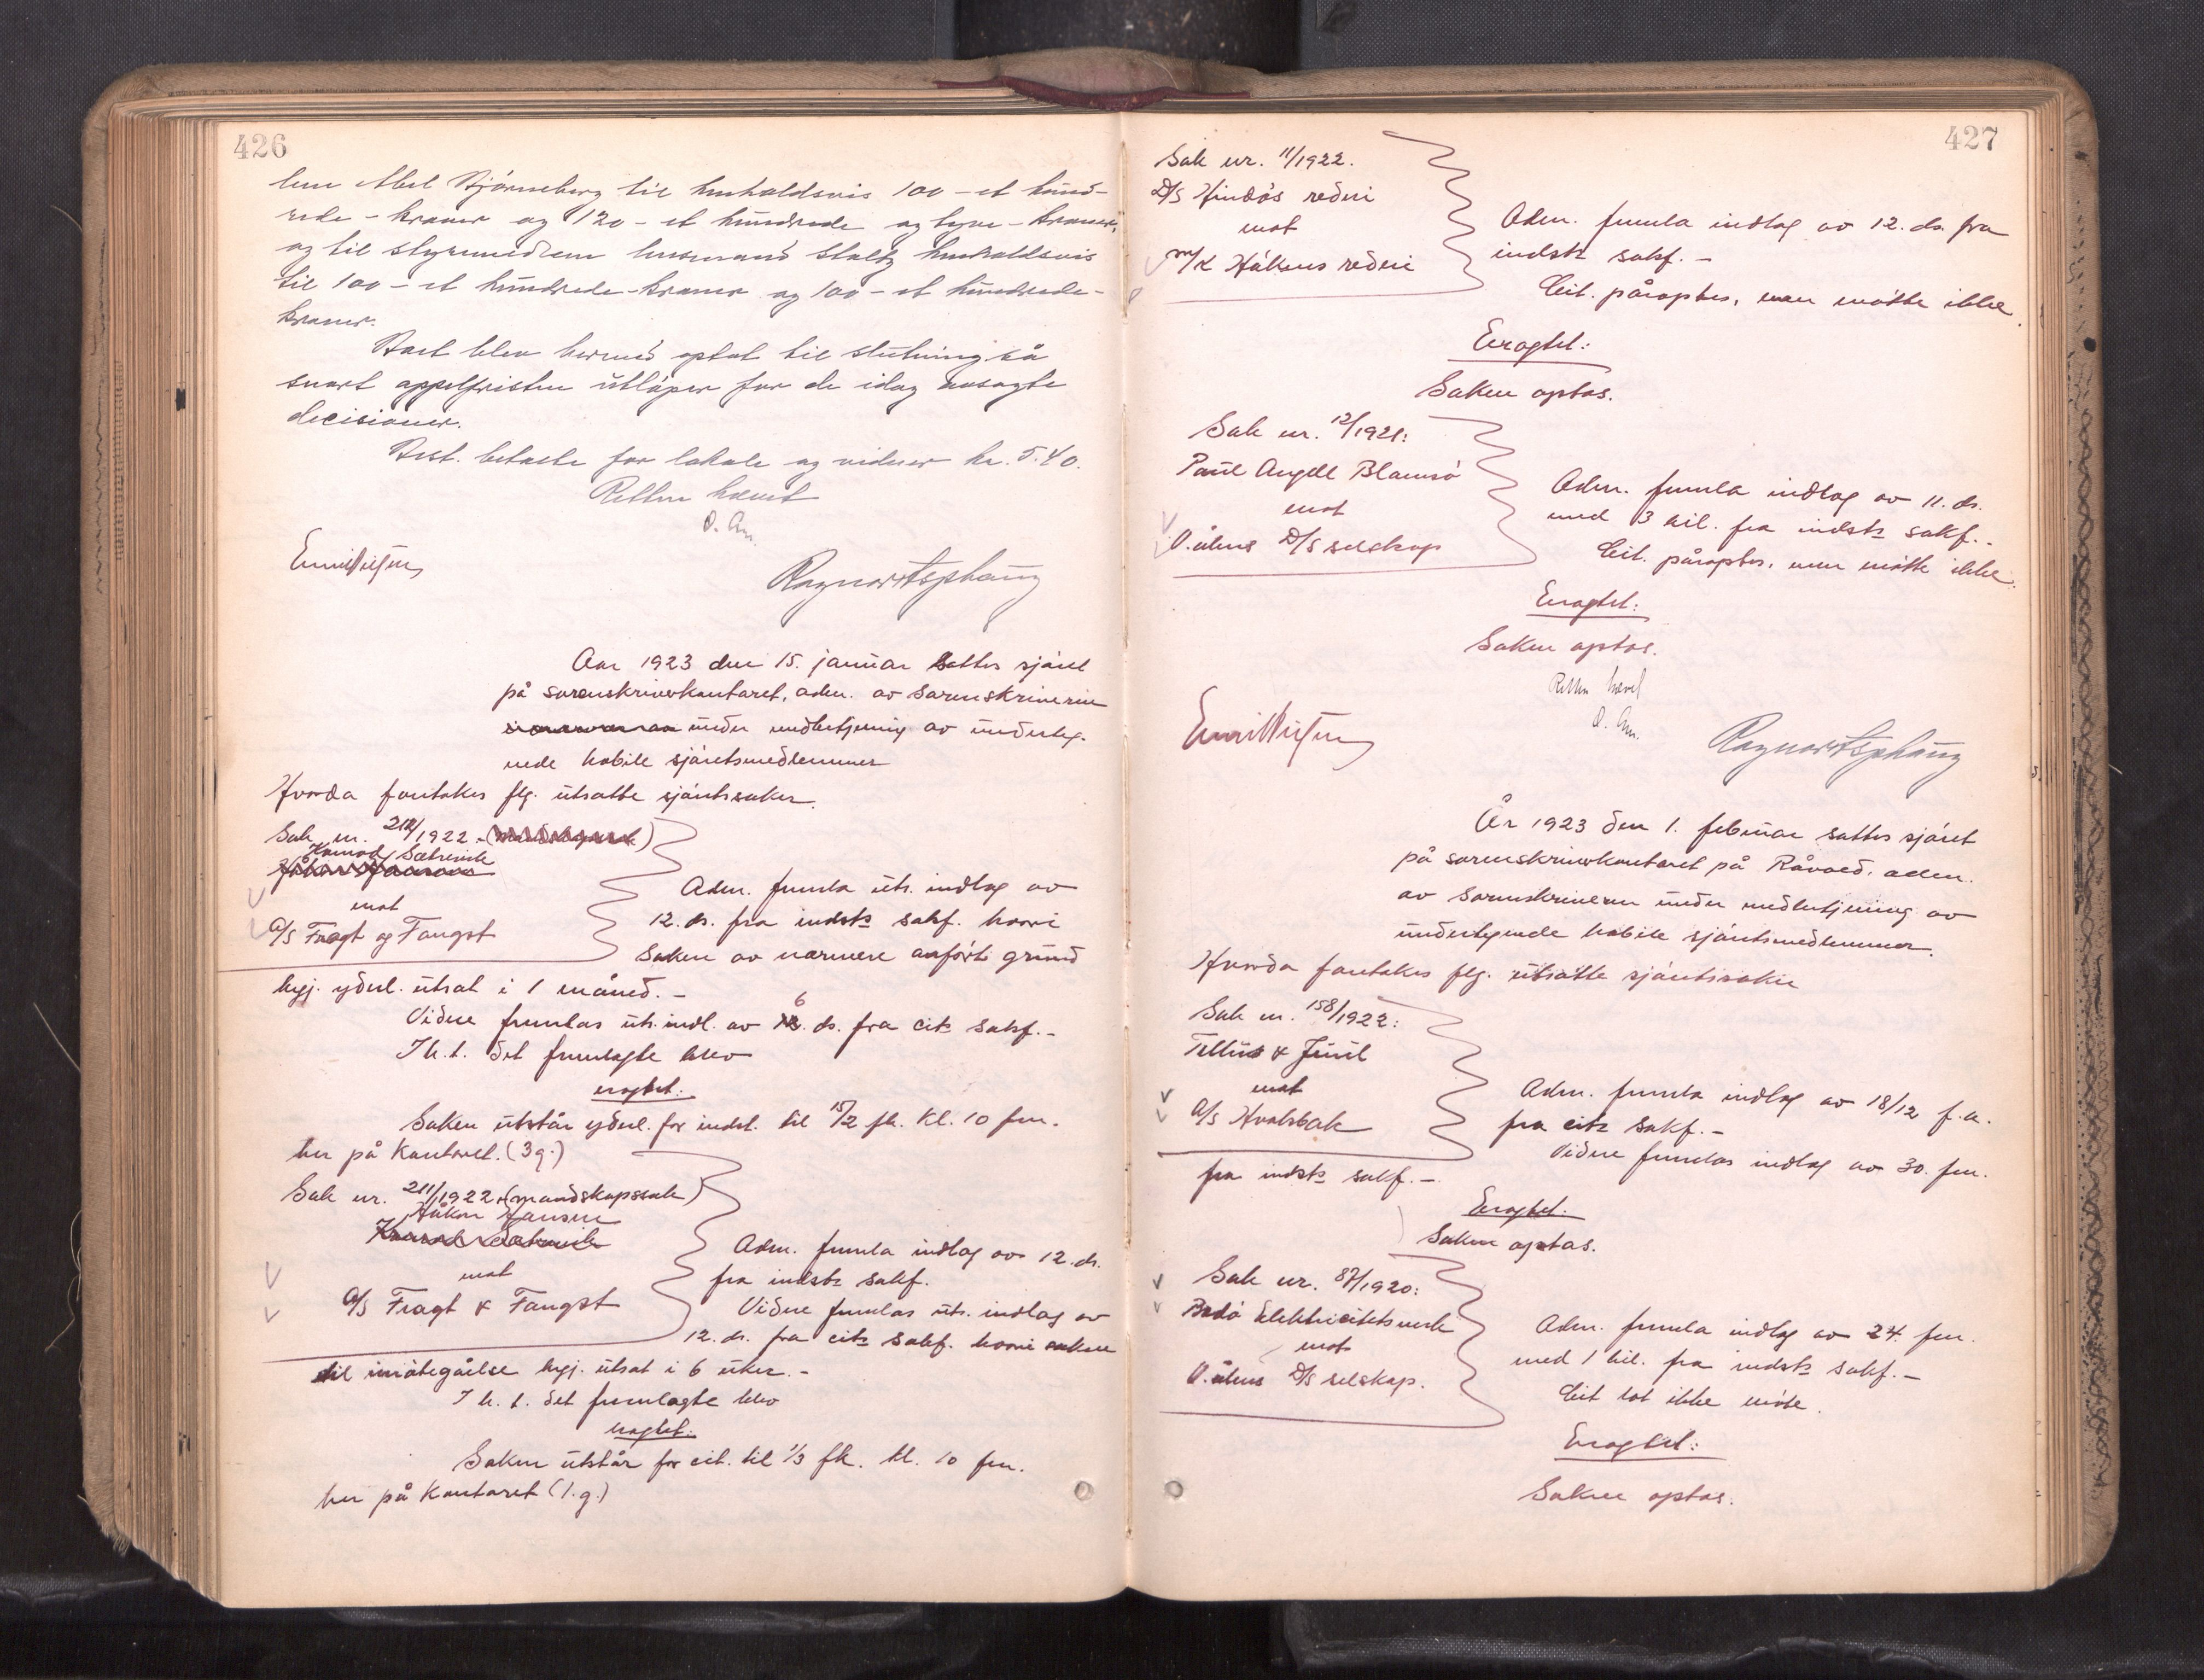 426
lem Abel Stjørneberg til henholdsvis 100 - et hund-
rede - kroner og 120 - et hundrede og tyve - kroner,
og til styrmedlem husmand Stoltz henholdsvis
til 100 - et hundrede - kroner og 100 - et hundrede -
kroner.
blev hermed optat til slutning så
snart appelfristen utløper for de idag avsagte
decisioner.
Best. betalte for lokale og vidner kr. 5.40.
Retten hævet
Aar 1923 den 15. januar sattes sjøret
på sorenskriverkontoret, adm. av sorenskriveren
under medbetjening av underteg-
nede habile sjøretsmedlemmer
Hvorda foretokes flg. utsatte sjøretssaker.
Sak nr. 212/1922.
Konrad Sætrevik
mot
A/S Fragt og Fangst
Adm. freml. uts. indlag av
12. ds. fra indst.s sakf. hvori
saken av nærmere anført grund
begj. yderl. utsat i 1 måned. -
Videre fremlas uts. indl. av 6. ds. fra cit.s sakf. -
I h. t. det fremlagte blev
eragtet:
Saken utstår yderl. for indst. til 15/2 fk. kl. 10 fm.
her på kontoret. (3 g.)
Sak nr. 211/1922. (mandskapssak)
Håkon Hansen
Konrad Sætrevik
mot
A/S Fragt & Fangst
Adm. fremla indlag av 12. ds.
fra indst.s sakf.
Videre fremlas uts. indlag av
12. ds. fra cit.s sakf. hvori saken
til imøtegåelse begj. utsat i 6 uker. -
I h. t. det fremlagte blev
eragtet:
Saken utstår for cit. til 1/3 fk. kl. 10 fm.
her på kontoret (1. g.)
427
Sak nr. 11/1922.
D/S Hindøs rederi
mot
M/K Håkons rederi
Adm. fremla indlag av 12. ds. fra
indst.s sakf. -
Cit. påroptes, men møtte ikke.
Eragtet:
Saken optas.
Sak nr. 12/1921:
Paul Angell Blamsø
mot
V.ålens D/S selskap
Adm. fremla indlag av 11. ds.
med 3 bil. fra indst.s sakf. -
Cit. påroptes, men møtte ikke.
Eragtet:
Saken optas.
Retten hævet
År 1923 den 1. februar sattes sjøret
på sorenskriverkontoret på adm.
av sorenskriveren under medbetjening av
undertegnede habile sjøretsmedlemmer.
Hvorda foretokes flg. utsatte sjøretssaker
Sak nr. 158/1922:
Tellus & Juul
mot
A/S Hvalsbak
Adm. fremla indlag av 18/12 f. a.
fra cit.s sakf. -
Videre fremlas indlag av 30. fm.
fra indst.s sakf. -
Eragtet:
Saken optas.
Sak nr. 87/1920:
Bodø Elektricitetsverk
mot
V.ålens D/S selskap.
Adm. fremla indlag av 24. fm.
med 1 bil. fra indst.s sakf. -
Cit. lot ikke møte.
Eragtet:
Saken optas.